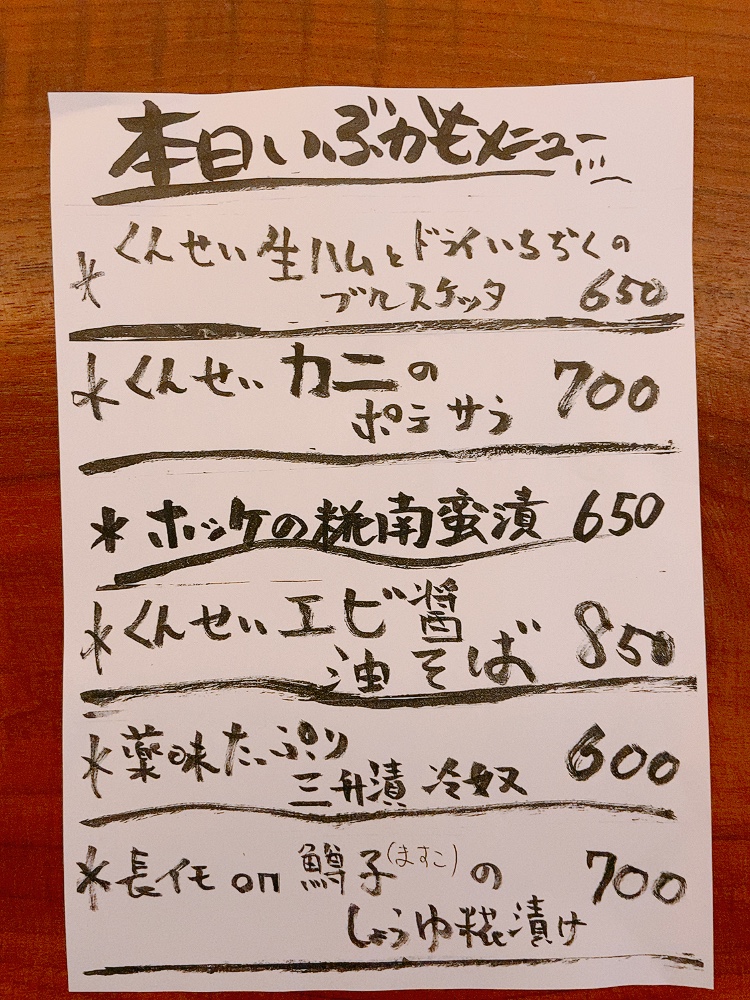 本日いぶかもメニュー
*くんせい生ハムとドライいちぢくの
ブルスケッタ 650
*くんせいカニの
ポテサラ 700
*ホッケの糀南蛮漬 650
*くんせいエビ醤
油そば 850
*薬味たっぷり
三升漬 冷奴 600
*長イモon鱒子(ますこ)の 700
しょうゆ糀漬け